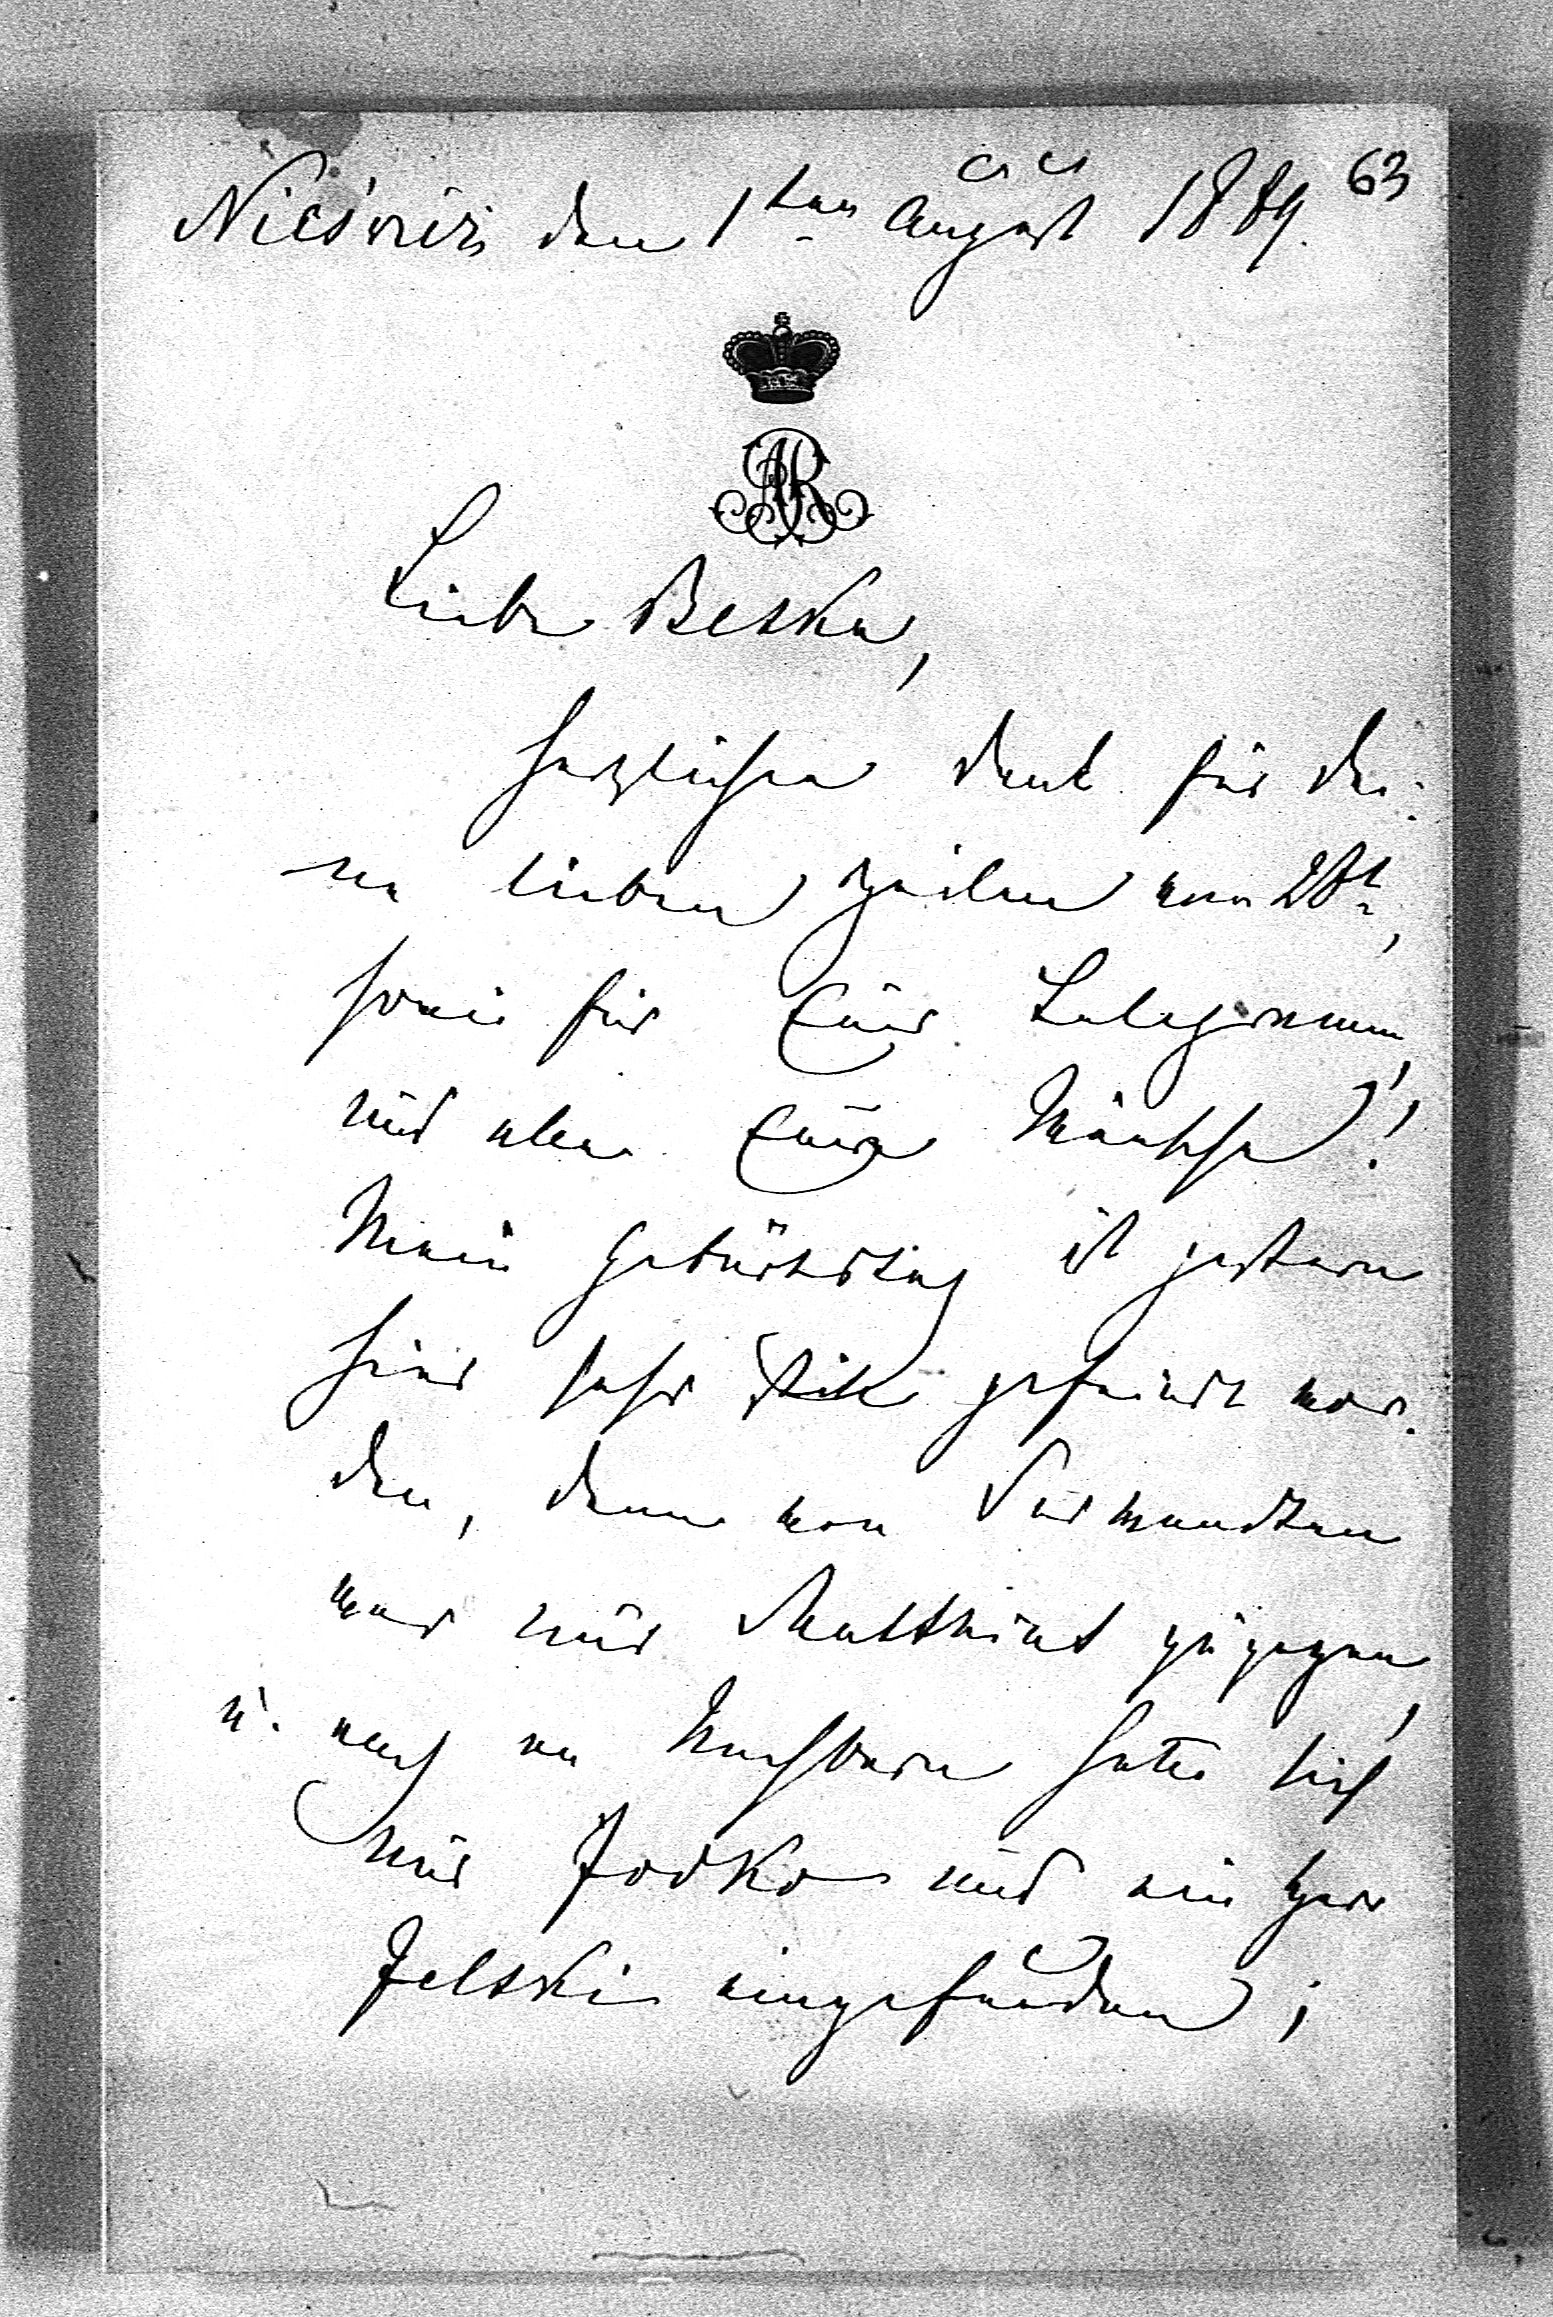 63
Nieśwież den 1ten August 1889.
AR
Liebe Betka,
herzlichen Dank für dei-
ne lieben Zeilen vom 28t,
sowie für Euer Telegramm,
und alle Eure Wünsche!
Mein Geburtstag ist gestern
hier sehr still gefeiert wor-
den, denn von Verwandten
war nur Matthias zugegen,
u. auch an Nachbarn hatte sich
nur Jodko und ein Herr
Jelski eingefunden;